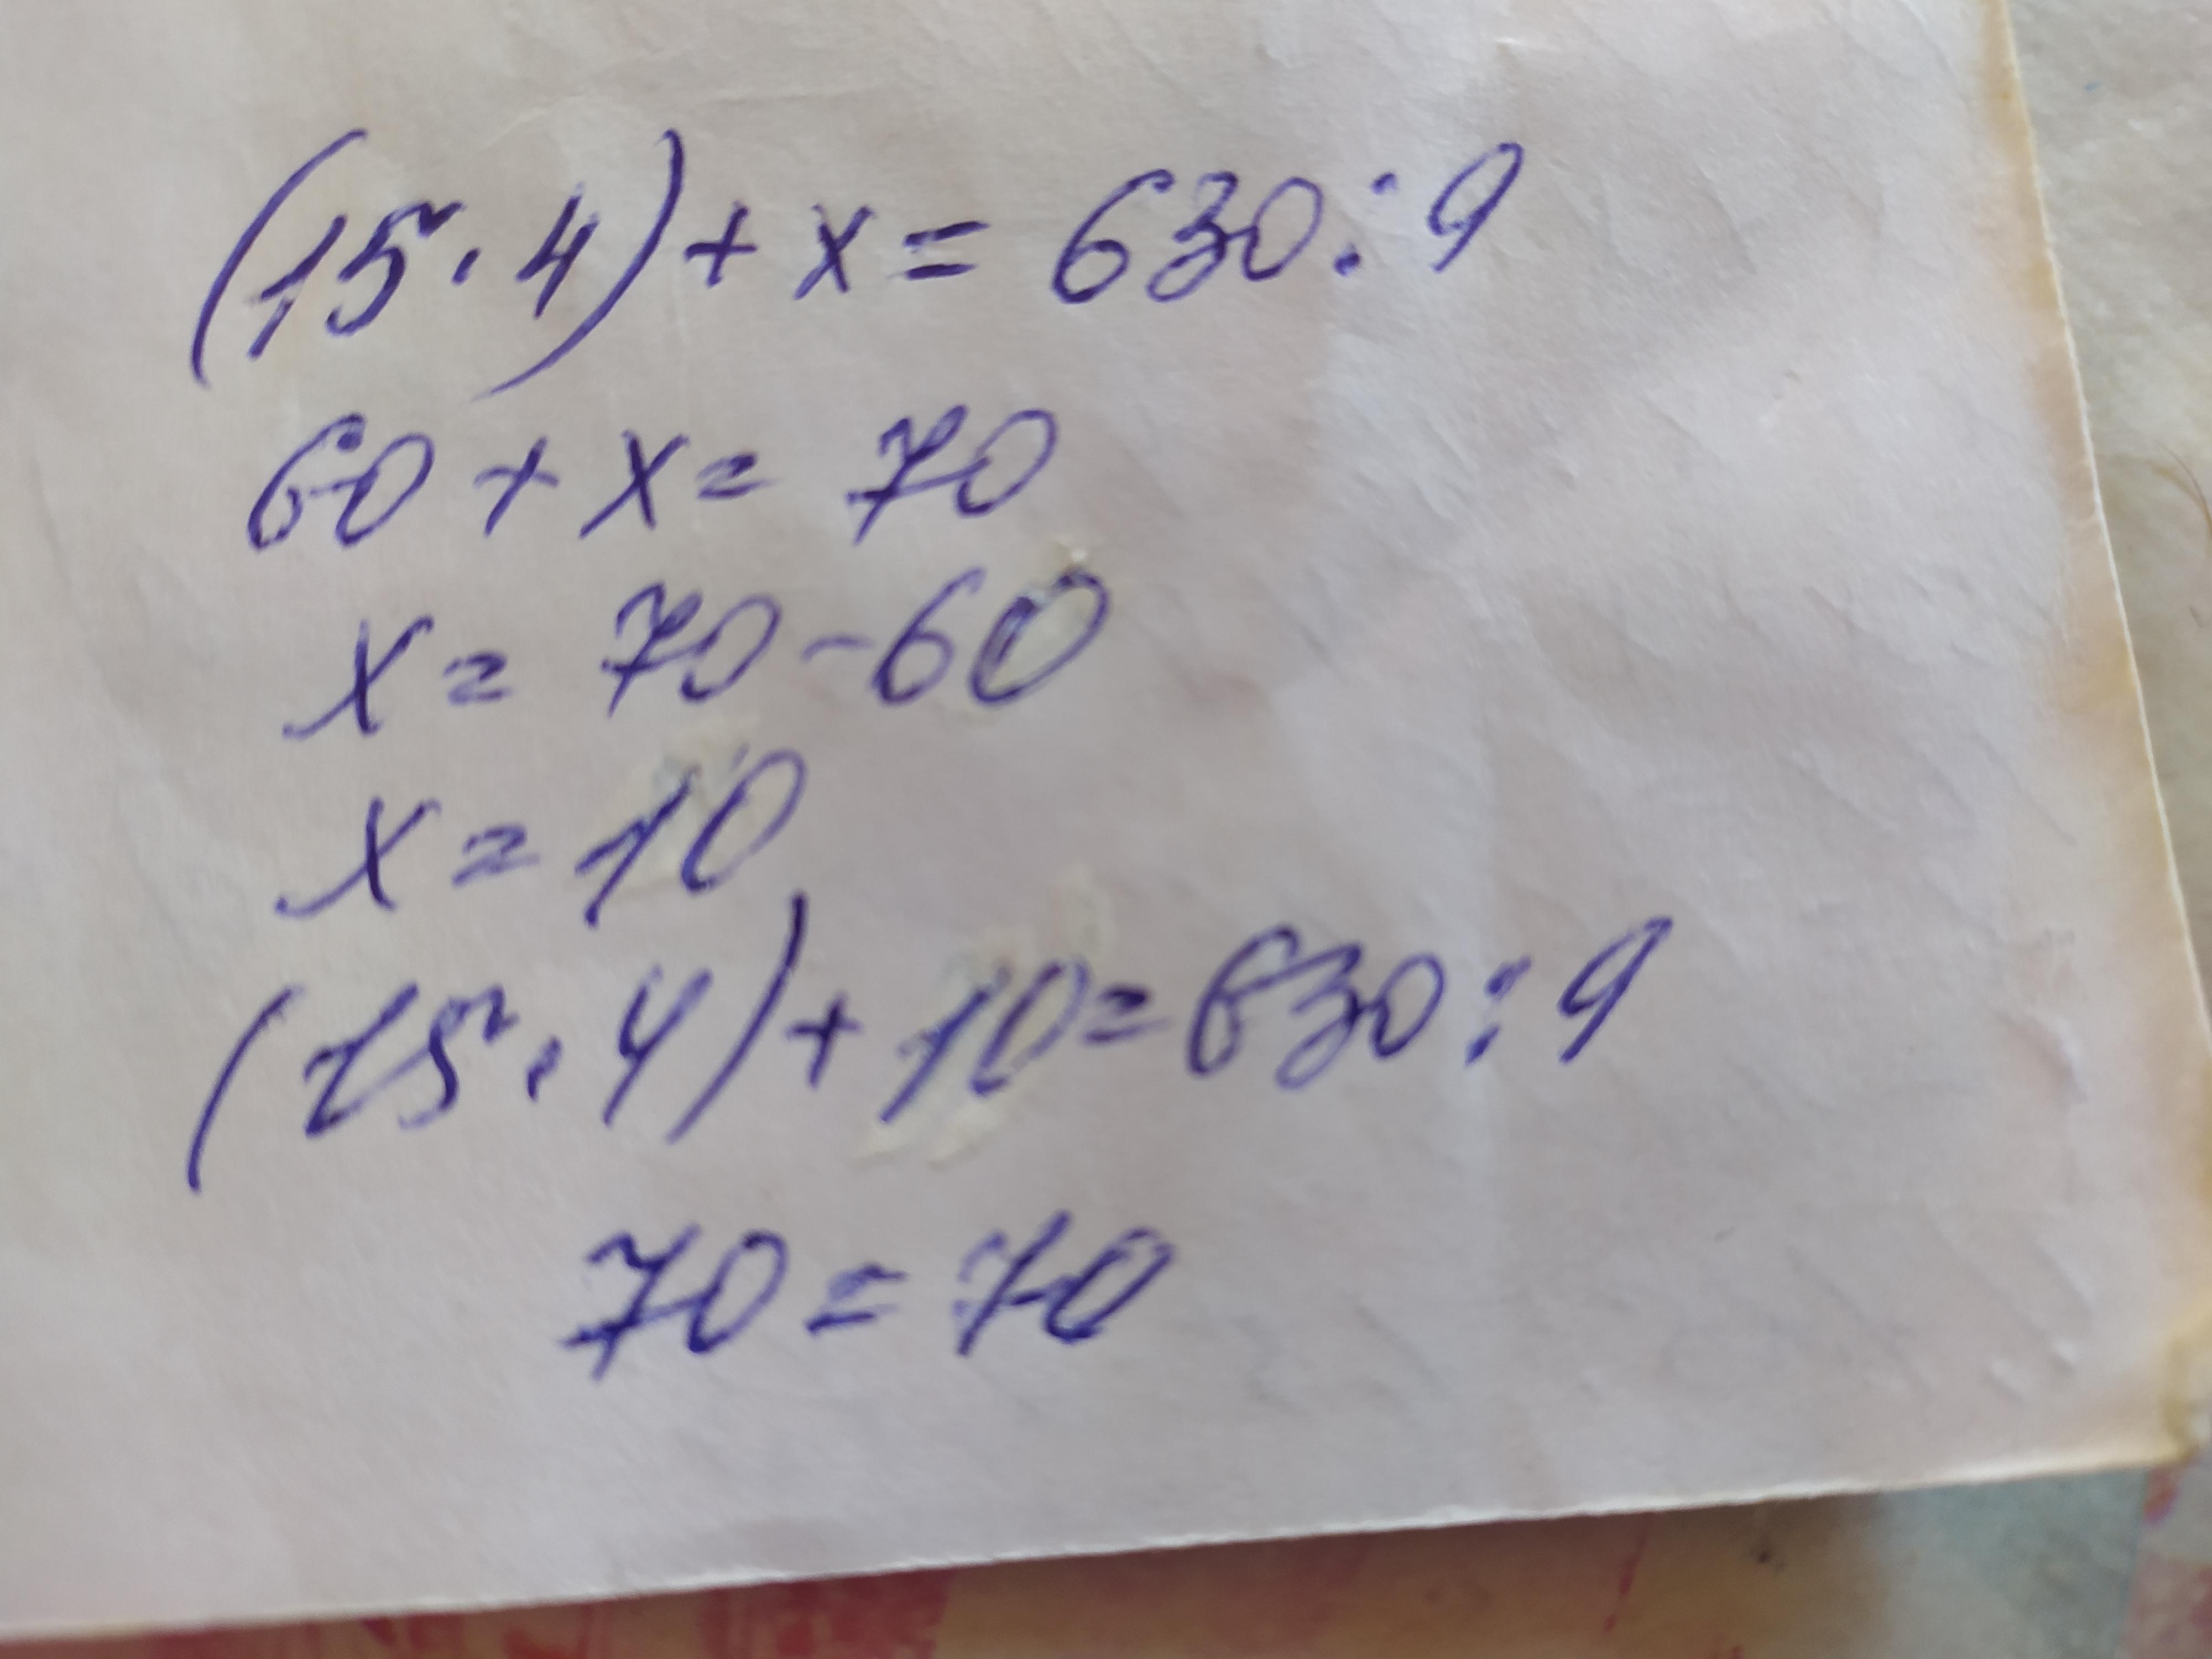 (15·4)+x=630:9
60+x=70
x=70-60
x=10
(15·4)+10=630:9
70=70